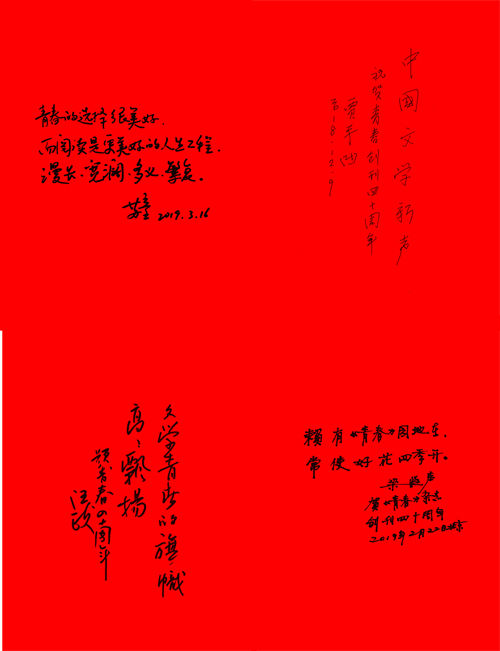 青春的选择很美好，
而阅读是更美好的人生工程，
漫长、宽阔、多义、繁复。
2019.3.16
中國文学新声
祝贺青春创刊四十周年
贾平凹
文學青春的旗幟
高高飄揚
题青春四十周年
汪政
賴有《青春》園地在，
常使好花四季开。
贺《青春》杂志
创刊四十周年
2019年2月22日